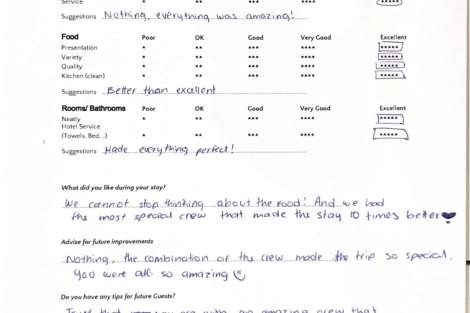 Service * ** *** **** *****
Suggestions Nothing, everything was amazing!
Food Poor OK Good Very Good Excellent
Presentation * ** *** **** *****
Variety * ** *** **** *****
Quality * ** *** **** *****
Kitchen (clean) * ** *** **** *****
Suggestions Better than excellent
Rooms/ Bathrooms Poor OK Good Very Good Excellent
Neatly * ** *** **** *****
Hotel Service
(Towels, Bed...) * ** *** **** *****
Suggestions Made everything perfect!
What did you like during your stay?
We cannot stop thinking about the food! And we had
the most special crew that made the stay 10 times better
Advise for future improvements
Nothing, the combination of the crew made the trip so special.
You were all so amazing
Do you have any tips for future Guests?
you are with an amazing crew that